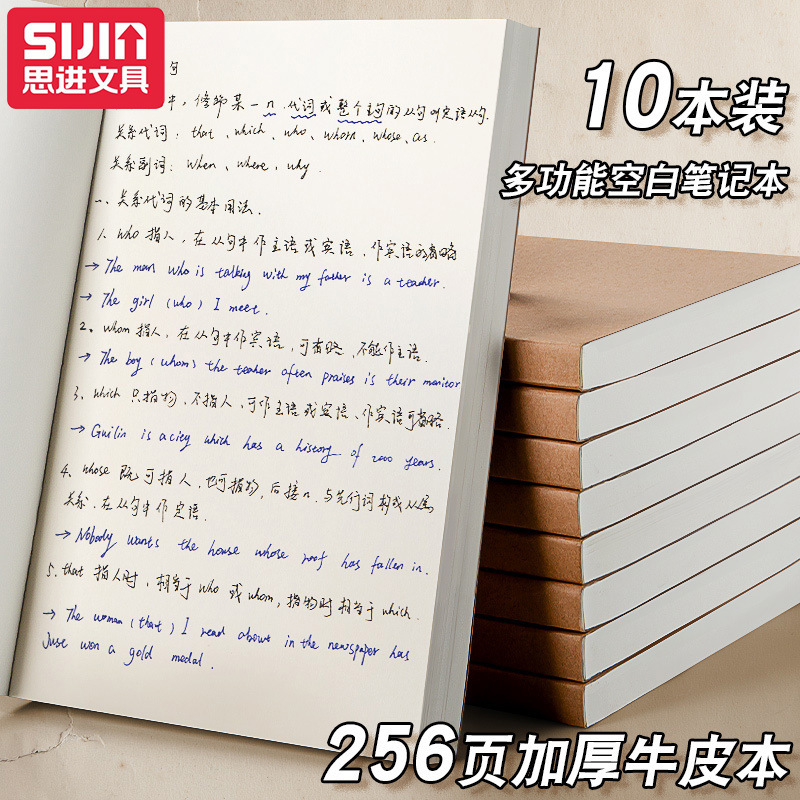 SIJIN
思进文具
10本装
多功能空白笔记本
句
,修饰某一n.代词或整个主句的从句叫定语从句.
关系代词:that、which、who、whom、whose、as.
关系副词:when、where、why.
一、关系代词的基本用法.
1. who 指人,在从句中作主语或宾语、作宾语可省略
→ The man who is talking with my father is a teacher.
→ The girl (who) I meet.
2、whom 指人,在从句中作宾语,可省略、不能作主语.
→ The boy (whom) the teacher often praises is their monitor
3、which 只指物、不指人、可作主语或宾语、作宾语可省略.
→ Guilin is a city which has a history of 2000 years.
4、whose 既可指人,也可指物,后接n.与先行词构成从属
关系、在从句中作定语.
→ Nobody wants the house whose roof has fallen in.
5. that 指人时,相当于who 或 whom,指物时相当于which.
→ The woman (that) I read about in the newspaper has
Just won a gold medal.
256页加厚牛皮本